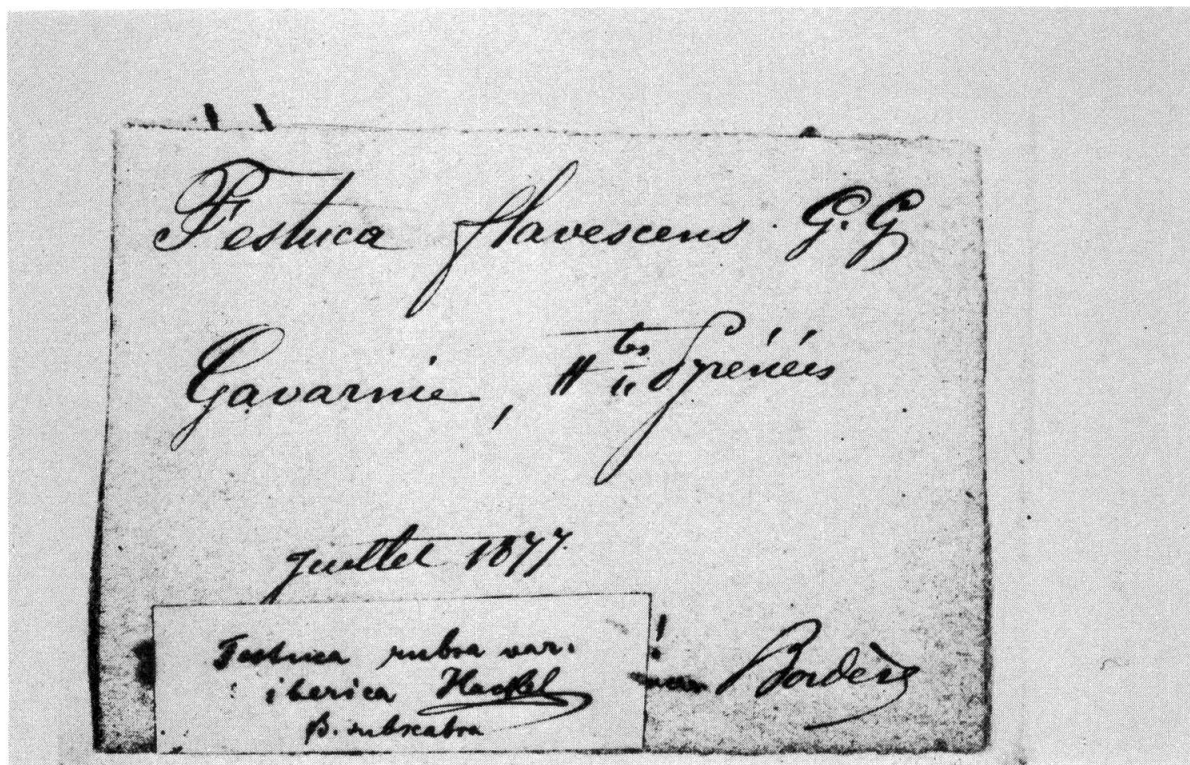 Festuca flavescens. G.G
Gavarnie, Htes Pyrénées
juillet 1877.
Festuca rubra var.
iberica Hackel
β. subscabra
! Bordère